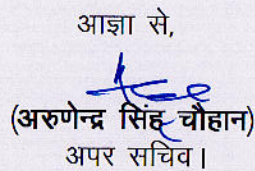 आज्ञा से,
(अरुणेन्द्र सिंह चौहान)
अपर सचिव।